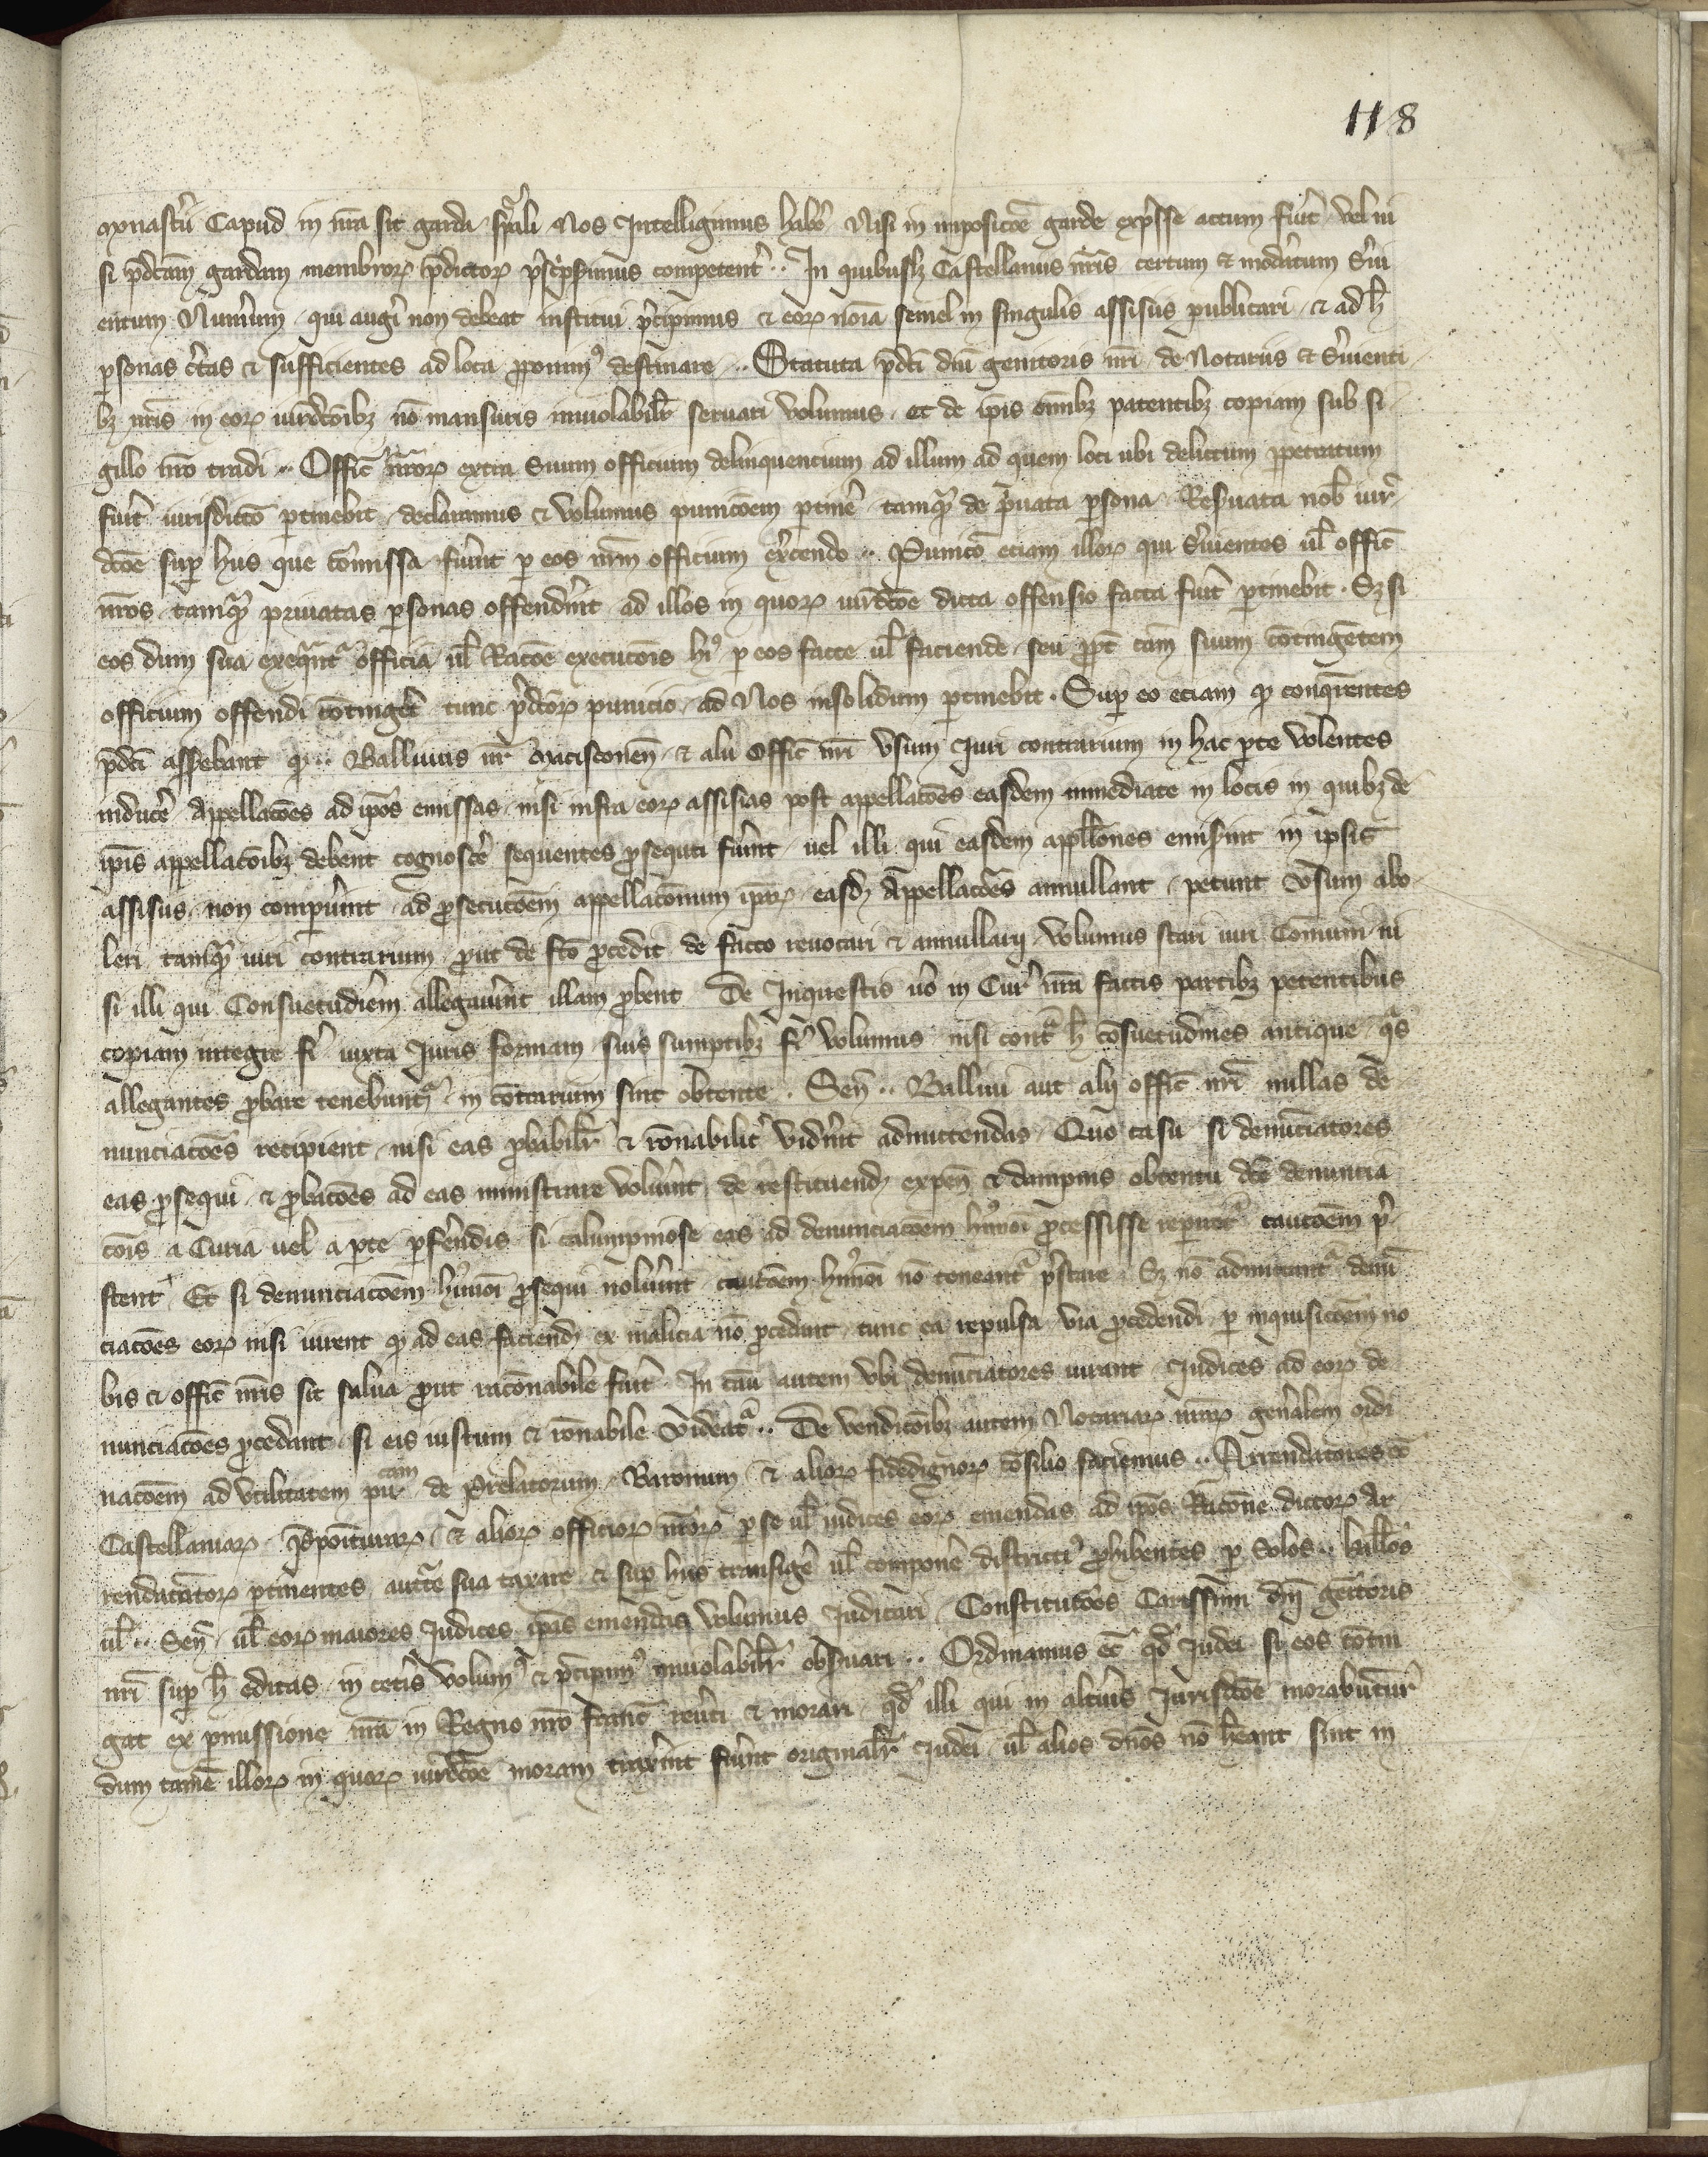 118
monast̄ij Capud in nr̄a sit garda sp̄ali Nos Intelligimus habe᷑ Nisi in impositōe garde exp̄sse actum fu᷑it vel ni
si p̄dc̄am gardam membroꝝ p̄dictoꝝ p̄sc̄psimus competent᷑ ·· In quibuslꝫ Castellanijs nr̄is certum et mod᷑atum S᷑ui
entum Num᷑um qui aug᷑i non debeat institui p᷑cipimus & eoꝝ noīa semel in singulis assisijs publicari & ad h̄
ꝑsonas c᷑tas & sufficientes ad loca ꝓponimꝰ destinare ·· Statuta p̄dc̄i dn̄i genitoris nr̄i de Notarijs et S᷑uienti
bꝫ nr̄is in eoꝝ iurisdc̄oībꝫ nō mansuris inuiolabilr̄ seruari volumus et de ip̄is om̄ibꝫ patentibꝫ copiam sub si
gillo nr̄o tradi ·· Offic̄ nr̄oꝝ extra suum officium delinquencium ad illum ad quem loci ubi delictum ꝑpetratum
fu᷑it iurisdictō ꝑtinebit declaramus & volumus punicōem ꝑtine᷑ tamqᷓ de p᷑uata ꝑsona Res᷑uata nob̄ iur᷑
dc̄oē suꝑ hijs que cōmissa fu᷑int ꝑ eos nr̄m officium ex᷑cendo ·· Punicō eciam illoꝝ qui s᷑uientes ul̄ offic̄
nr̄os tamqᷓ priuatas ꝑsonas offend᷑int ad illos in quoꝝ iurisdc̄oē dicta offensio facta fu᷑it ꝑtinebit · Sꝫ si
eos dum sua exequ᷑nt᷑ officia ul̄ Racōe execucōis hꝰ ꝑ eos facte ul̄ faciende seu ꝓpt᷑ cām suum cōtingētem
officium offendi cōting᷑et tunc p᷑dc̄oꝝ punicio ad Nos insolidum ꝑtinebit · Suꝑ eo eciam qꝫ conqu᷑entes
p̄dc̄i ass᷑ebant qꝫ ·· Balliuus nr̄ Matisconen̄ & alij Offic̄ nr̄i vsum Iuri contrarium in hac ꝑte volentes
induce᷑ Appellacōes ad ip̄os emissas nisi infra eoꝝ assisias post appellacōes easdem immediate in locis in quibꝫ de
ip̄is appellacōibꝫ debent cognosce᷑ sequentes ꝓsequti fu᷑int uel illi qui easdem appll̄ones emis᷑int in ipsis
assisijs non compu᷑int ad ꝓsecucōem appellacōnum ip̄aꝝ easdꝫ Appellacōes annullant petunt vsum abo
leri tamqᷓ iuri contrarium ꝓut de fc̄o ꝓcedit de facto reuocari & annullari volumus stari iuri Comuni ni
si illi qui Consuetudiēm allegau᷑int illam ꝓbent De Inquestis u᷑o in Cur᷑ nr̄a factis partibꝫ petentibus
copiam integre fi᷑ iuxta Iuris formam suis sumptibꝫ fi᷑ volumus nisi cont᷑ h̄ cōsuetudines antique qᷓs
allegantes ꝓbare tenebunt᷑ in cōtrarium sint obtente · Sen̄ ·· Balliui aut alij offic̄ nr̄i nullas de
nunciacōes recipient nisi eas ꝓbabilr̄ & rōnabilit᷑ vid᷑int admittendas Quo casu si denūciatores
eas ꝓsequi & ꝓbacōes ad eas ministrare volu᷑int de restituendꝫ expen̄ & dampnis obtentu dc̄e denuncia
cōis a Curia uel a ꝑte ꝑferendis si calumpniose eas ad denunciacōem hꝰmōi ꝓcessisse reꝑiret᷑ caucōem p᷑
stent Et si denunciacōem hꝰmōi ꝓsequi nolu᷑int caucōem hꝰmōi nō teneant᷑ p᷑stare Sꝫ nō admittant᷑ denū
ciacōes eoꝝ nisi iurent qꝫ ad eas faciendꝫ ex malicia nō ꝓcedant tunc ea repulsa via ꝓcedendi ꝑ inquisicōem no
bis & offic̄ nr̄is sit salua ꝓut racōnabile fu᷑it In cāu autem vbi denūciatores iurant Iudices ad eoꝝ de
nunciacōes ꝓcedant si eis iustum & rōnabile videat᷑ ·· De vendicōibꝫ autem Notariaꝝ nr̄aꝝ gen᷑alem ordi
nacōem ad vtilitatem pu᷑cam de Prelatorum Baronum & alioꝝ fidedignoꝝ cōsilio faciemus ·· Arrendatores ec̄
Castellaniaꝝ P᷑positur̄aꝝ & alioꝝ officioꝝ nr̄oꝝ ꝑ se ul̄ iudices eoꝝ emendas ad ip̄os Racōne dictoꝝ Ar
rendatatoꝝ ꝑtinentes auctᵗe sua taxare & suꝑ hijs transige᷑ ul̄ compone᷑ districtiꝰ ꝓhibentes ꝑ Solos ·· ball̄os
ul̄ ·· Sen̄ ul̄ eoꝝ maiores Iudices ip̄as emendas volumus Iudicari Constitucōes Carissimi dn̄i genitoris
nr̄i suꝑ h̄ editas in cet᷑is volumꝰ & p᷑cipimꝰ inuiolabilr̄ obs᷑uari ·· Ordinamus ec̄ qd̄ Iudei si eos cōtin
gat ex ꝑmissione nr̄a in Regno nr̄o Franc̄ reu᷑ti & morari qd̄ illi qui in altiuis Iurisdc̄oē morabūtur
dum tamē illoꝝ in quoꝝ iurisdc̄oē moram trax᷑int fu᷑int originalr̄ Iudei ul̄ alios dn̄os nō heānt sint in